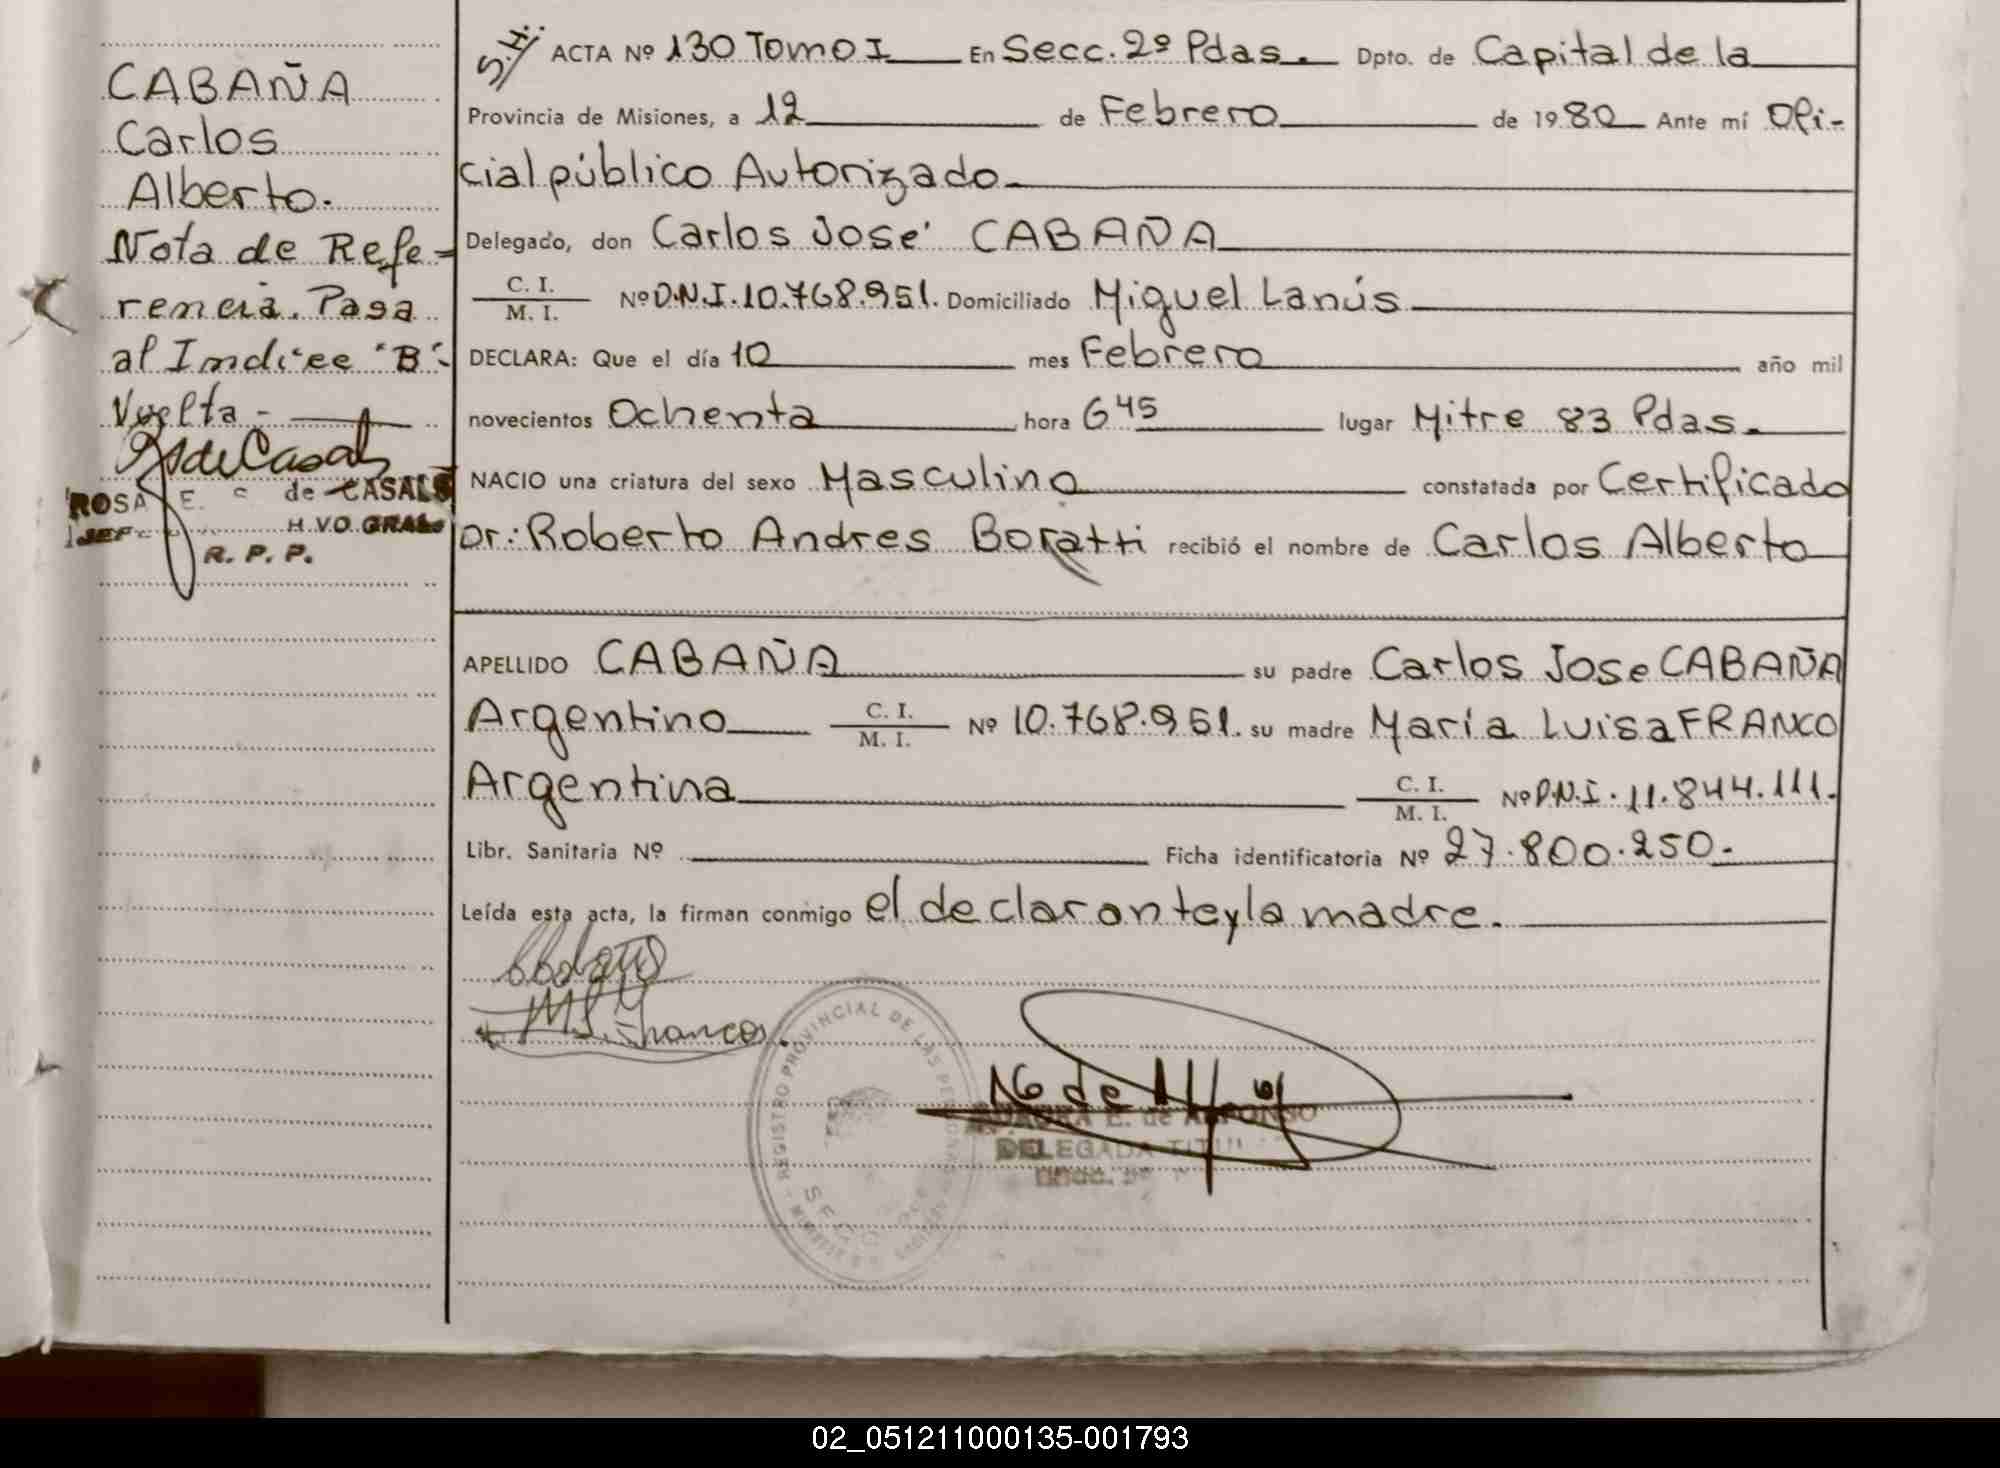 CABAÑA
Carlos
Alberto.
Nota de Refe=
rencia. Pasa
al Indice "B"-
Vuelta-
de Casals
ROSA E. de CASALS
JEF H VO GRAL
R. P. P.
S.I. ACTA Nº 130 Tomo I En Secc. 2º Pdas. Dpto. de Capital de la
Provincia de Misiones, a 12 de Febrero de 1980 Ante mí Ofi-
cial público Autorizado
Delegado, don Carlos José CABAÑA
C. I.
M. I. Nº D.N.I. 10.768.951. Domiciliado Miguel Lanús
DECLARA: Que el día 10 mes Febrero año mil
novecientos Ochenta hora 6 45 lugar Mitre 83 Pdas.
NACIO una criatura del sexo Masculino constatada por Certificado
Dr: Roberto Andres Boratti recibió el nombre de Carlos Alberto
APELLIDO CABAÑA su padre Carlos Jose CABAÑA
Argentino C. I.
M. I. Nº 10.768.951. su madre María Luisa FRANCO
Argentina C. I.
M. I. Nº D.N.I. 11.844.111.
Libr. Sanitaria Nº Ficha identificatoria Nº 27.800.250.
Leída esta acta, la firman conmigo el declarante y la madre.
M L Franco
REGISTRO PROVINCIAL DE LAS PERSONAS
E. de ALFONSO
DELEGADA TITU
Secc. 2º
02_051211000135-001793